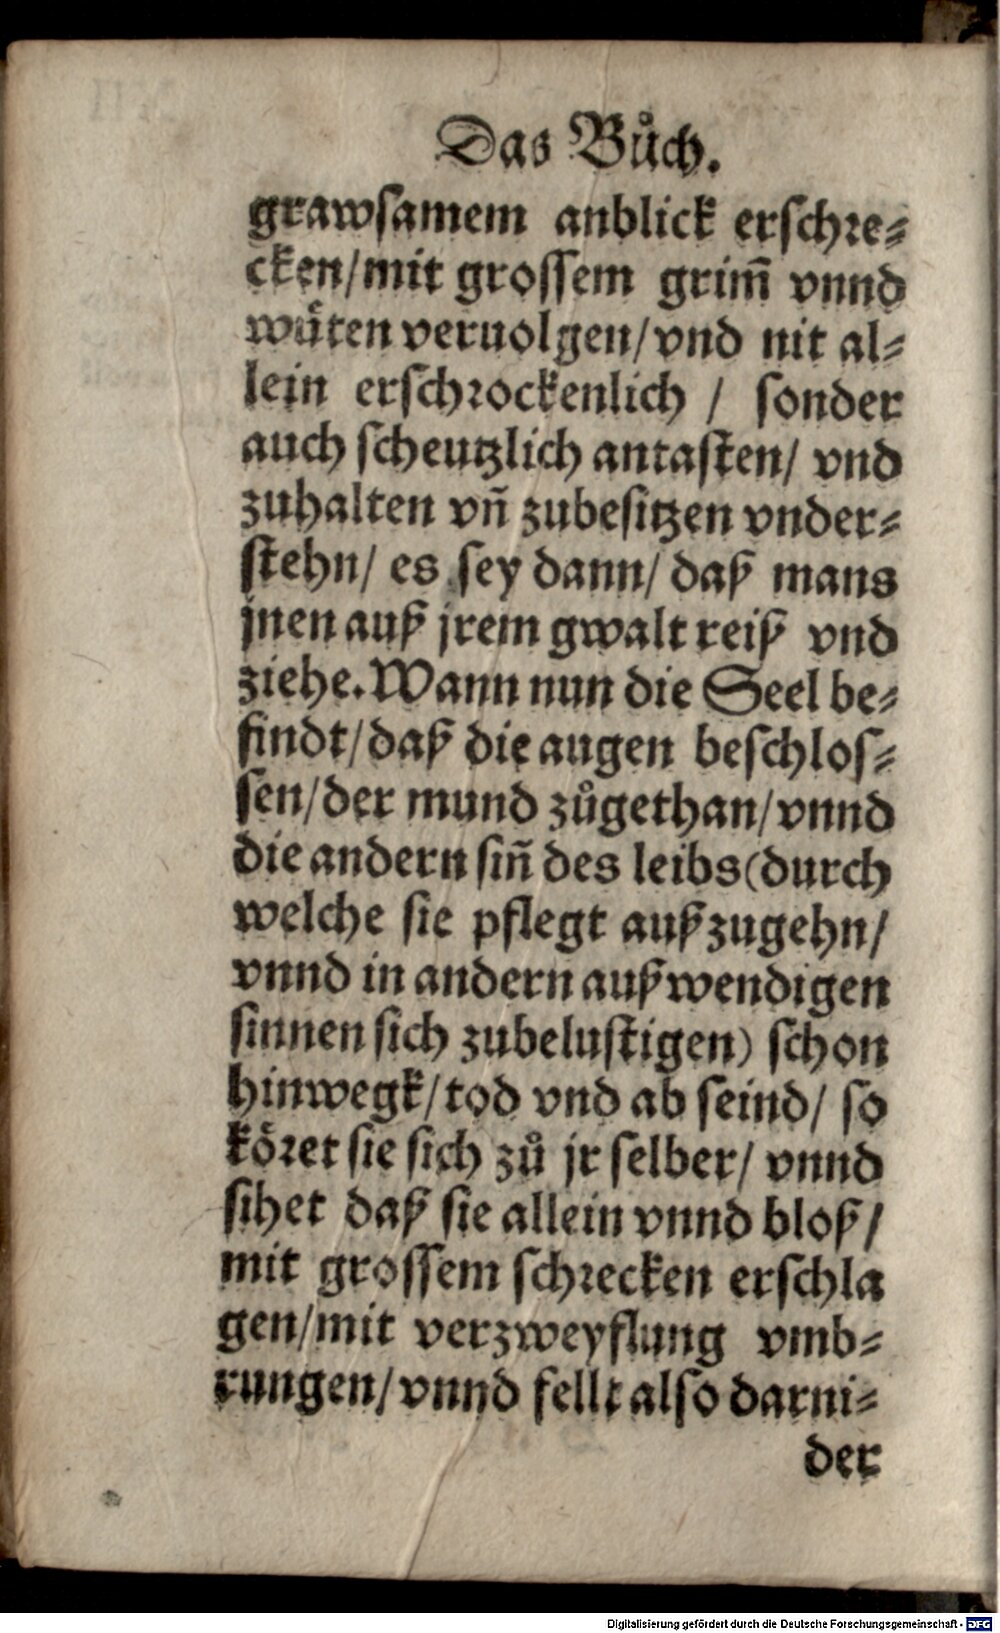 Das Bůch.
grawsamem anblick erschre⸗
cken/mit grossem grim̃ vnnd
wuͤten veruolgen/vnd nit al⸗
lein erschrockenlich / sonder
auch scheutzlich antasten/ vnd
zuhalten vñ zubesitzen vnder⸗
stehn/ es sey dann/ daß mans
jnen auß jrem gwalt reiß vnd
ziehe. Wann nun die Seel be⸗
findt/daß die augen beschlos⸗
sen/der mund zůgethan/vnnd
die andern siñ des leibs(durch
welche sie pflegt außzugehn/
vnnd in andern außwendigen
sinnen sich zubelustigen) schon
hinwegk/tod vnd ab seind/ so
koͤret sie sich zů jr selber/ vnnd
sihet daß sie allein vnnd bloß/
mit grossem schrecken erschla
gen/mit verzweyflung vmb⸗
rungen/vnnd fellt also darni⸗
der
Digitalisierung gefördert durch die Deutsche Forschungsgemeinschaft - DFG